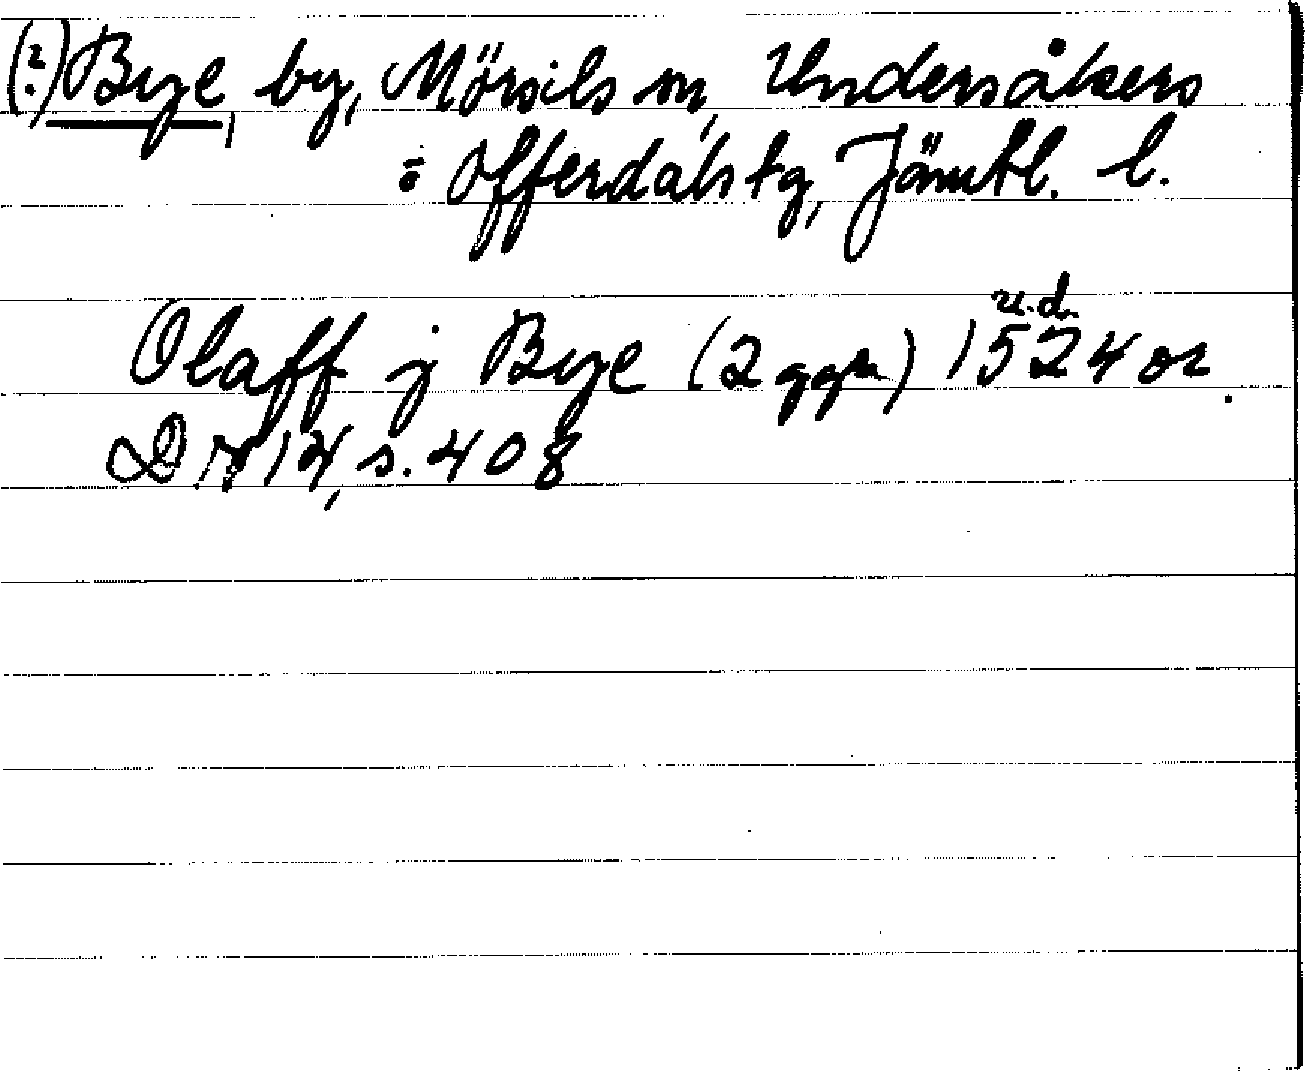 (?) Bye, by, Mörsils sn, Undersåkers
= Offerdals tg, Jämtl. l.
u.d.
Olaff j Bye (2 ggr) 1524 or.
DN 14, s. 408